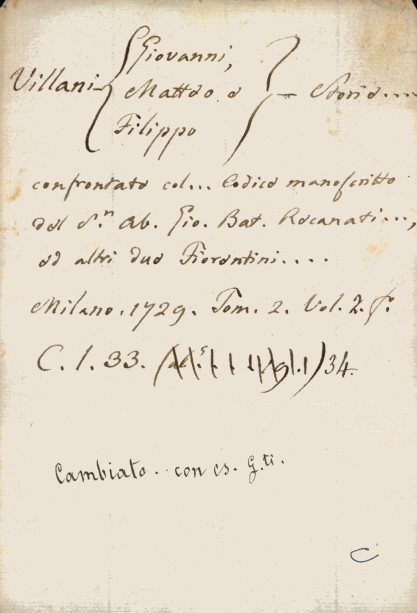 Giovanni,
Villani - { Matteo e } - Storie....
Filippo
confrontate col... Codice manoscritto
del S.r Ab. Gio. Bat. Recanati...,
ed altri due Fiorentini....
Milano. 1729. Tom. 2. Vol. 2. f.º
C. l. 33. 34.
Cambiato. con es. G.ti.
C